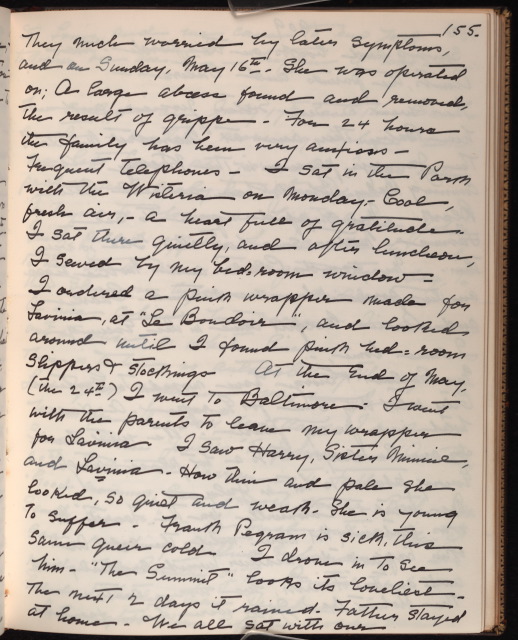 155.
They much worried by later symptoms,
and on Sunday, May 16th. She was operated
on; A large abcess found and removed,
the result of grippe - For 24 hours
the family has been very anxious -
Frequent telephones - I sat in the Park
with the Wisteria on Monday. Cool,
fresh air, - a heart full of gratitude -
I sat there quietly, and after luncheon,
I sewed by my bed-room window =
I ordered a pink wrapper made for
Lavinia, at "Le Boudoir", and looked
around until I found pink bed-room
Slippers & Stockings At the End of May,
(the 24th) I went to Baltimore - I went
with the parents to leave my wrapper
for Lavinia I saw Harry, Sister Minnie,
and Lavinia - How thin and pale she
looked, so quiet and weak - She is young
To suffer - Frank Pegram is sick, this
same queer cold I drove in To see
him - "The Summit" looks its loveliest -
The next 2 days it rained - Father stayed
at home - We all sat with our